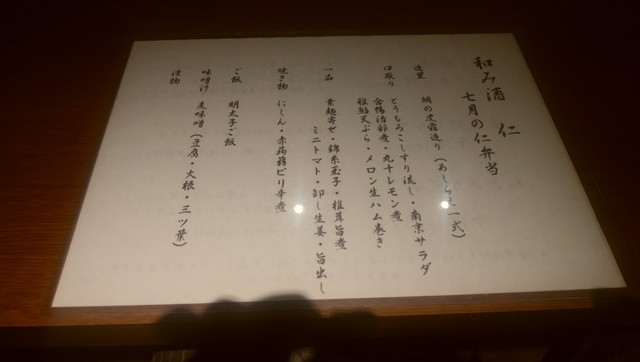 和み酒 仁
七月の仁弁当
造里 鯛の皮霜造り(あしらえ一式)
口取り とうもろこしすり流し・南京サラダ
合鴨治部煮・丸十レモン煮
稚鮎天ぷら・メロン生ハム巻き
一品 素麺寄せ・錦糸玉子・椎茸旨煮
ミニトマト・卸し生姜・旨出し
焼き物 にしん・赤蒟蒻ピリ辛煮
ご飯 明太子ご飯
味噌汁 麦味噌(豆腐・大根・三ツ葉)
漬物